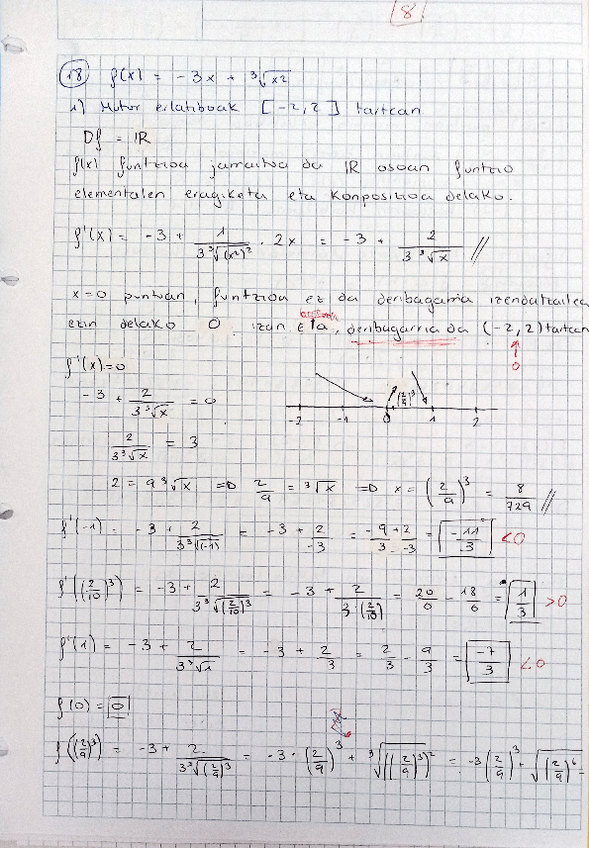 8
18 f(x) = -3x + ³√x²
1) Mutur erlatiboak [-2, 2] tartean
Df = IR
f(x) funtzioa jarraitua da IR osoan funtzio
elementalen eragiketa eta konposizioa delako.
f'(x) = -3 + 1/(3 ³√(x²)²) · 2x = -3 + 2/(3 ³√x) //
x=0 puntuan, funtzioa ez da deribagarria izendatzailea
ezin delako 0 izan eta, deribagarria da (-2, 2) tartean
0
f'(x) = 0
-3 + 2/(3 ³√x) = 0
-2 -1 0 (2/9)³ 1 2
2/(3 ³√x) = 3
2 = 9 ³√x => 2/9 = ³√x => x = (2/9)³ = 8/729 //
f'(-1) = -3 + 2/(3 ³√(-1)) = -3 + 2/-3 = = -11/3 <0
f'((2/10)³) = -3 + 2/(3 ³√(2/10)³) = -3 + 2/(3·(2/10)) = 20/6 - 18/6 = 1/3 >0
f'(1) = -3 + 2/(3 ³√1) = -3 + 2/3 = 2/3 - 9/3 = -7/3 <0
f(0) = 0
f((2/9)³) = -3 + 2/(3 ³√(2/9)³) = -3 · (2/9)³ + ³√((2/9)³)² = -3(2/9)³ + √(2/9)⁶ =